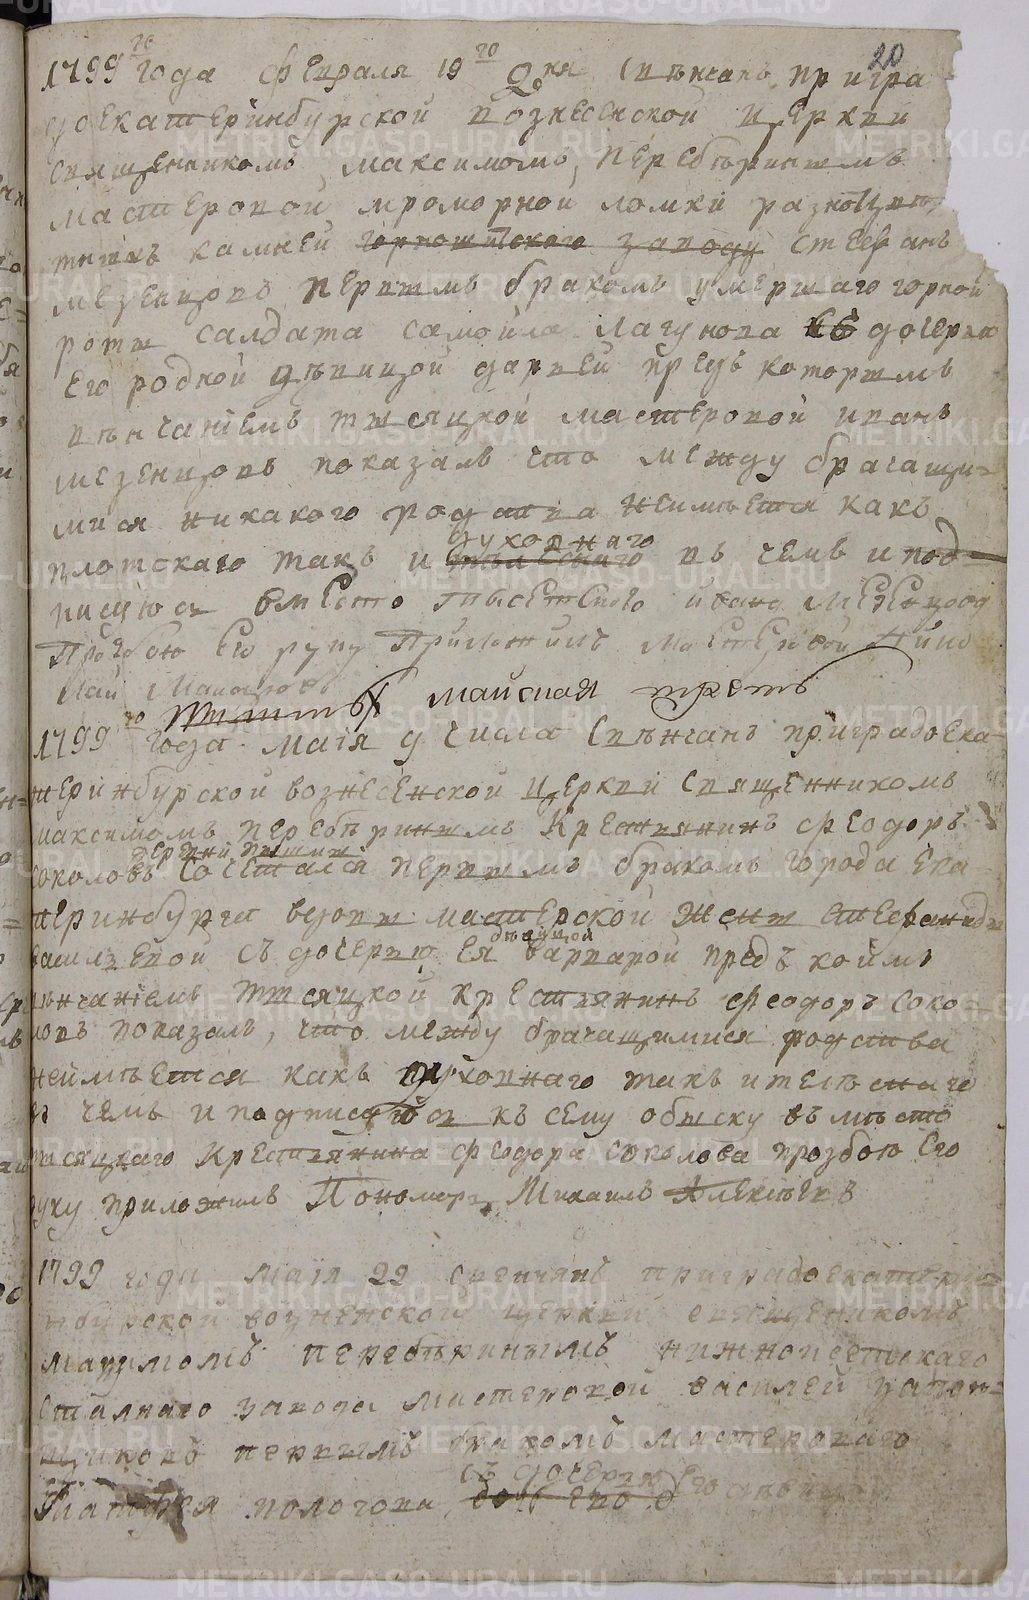 20
1799го года февраля 19го дня свѣнчанъ при гра
доекатерїнбурской вознесенской церкви
священникомъ максимомъ перебѣринымъ
мастеровой мроморной ломки разноцвѣ
тныхъ камней горношитского заводу стефанъ
мезенцовъ первымъ бракомъ умершаго горной
роты салдата самойла лагунова съ дочерью
его родной дѣвицой дарьей предъ которымъ
вѣнчанїемъ тысяцкой мастеровой иванъ
мезенцовъ показалъ что между брачащи
мися никакого родства неимѣется какъ
плотскаго такъ и духовнаго въ чемъ и под
писуюсь вместо тысецкого ивана мезенцова
прозбою его руку приложилъ мастеровой
майская треть
1799го года маїя 9 числа свѣнчанъ приградоека
терїнбурской вознесенской церквй священникомъ
максимомъ перебѣринымъ крестьянинъ феодоръ
соколовъ сочетался первымъ бракомъ города ека
терїнбурга вдовы мастерской жены стефаниды
васильевой съ дочерью ея дѣвицой варварой предъ коимъ
вѣнчанїемъ тысяцкой крестьянинъ феодоръ соко
ловъ показалъ, что между брачащимися родства
неймѣется какъ духовнаго такъ и телѣснаго
въ чемъ и подписуюсь къ сему обыску вѣмѣсто
тысяцкаго крестьянина феодора соколова прозбою его
руку приложилъ Пономарь Михаилъ Алексѣевъ
1799 года маїя 22 свенчанъ приградоекатери
нбурской вознесенской церкви священикомъ
маѯимомъ перебѣринымъ нижноисецкаго
сталнаго завода мастеровой василей запон
щиковъ первымъ бракомъ мастероваго
пологова съ дочерью его